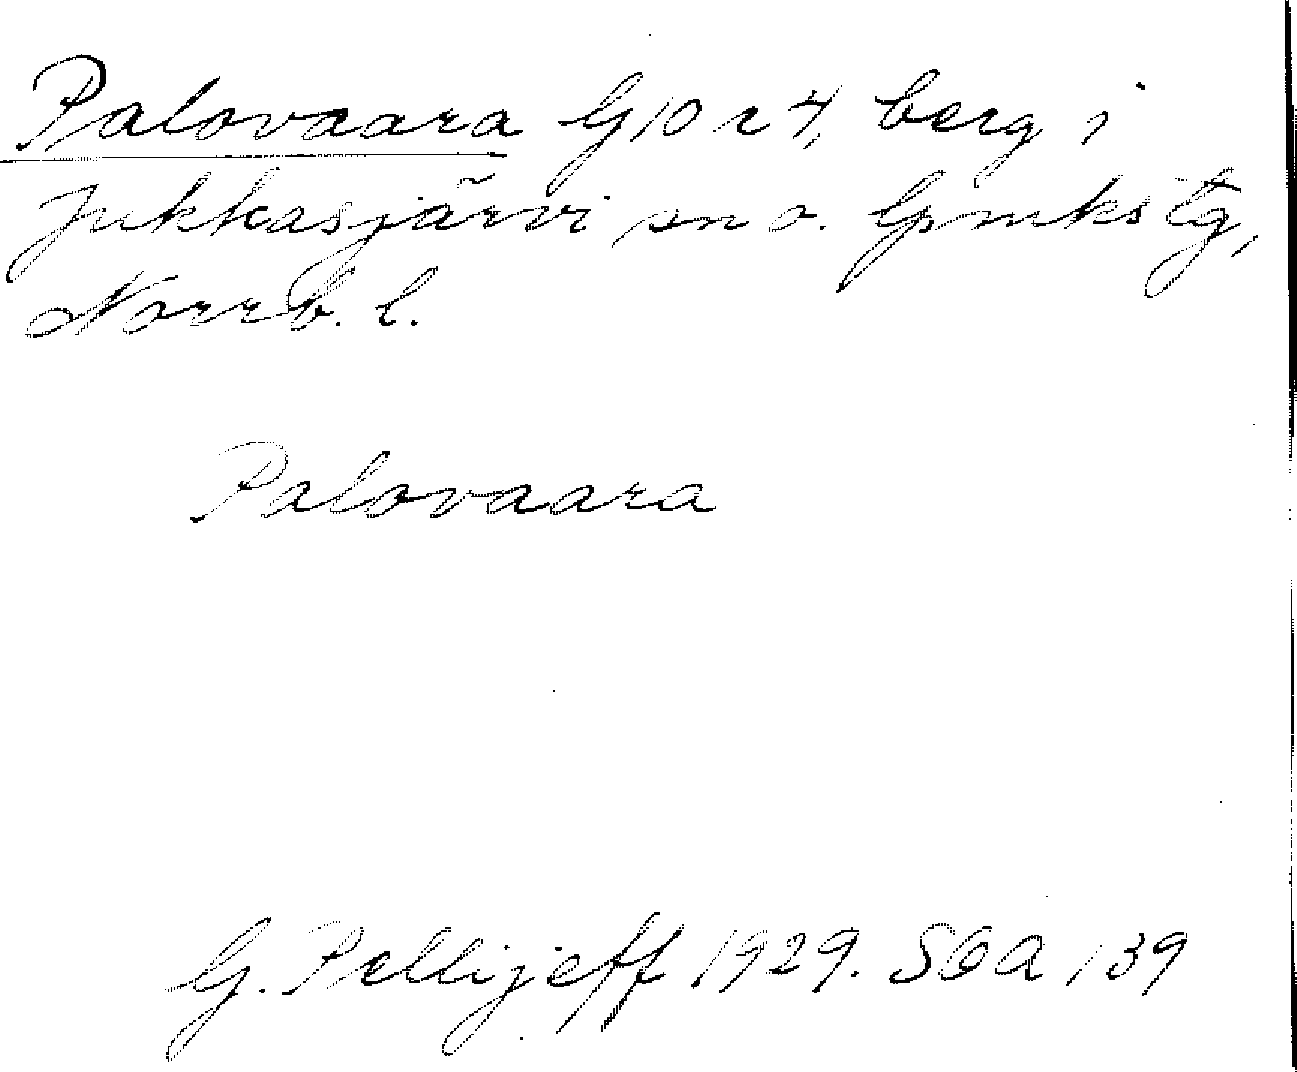 Palovaara G 10 r 4, berg i
Jukkasjärvi sn o. Gpmkstg,
Norrb. l.
Palovaara
G. Pellijeff 1929. SOA 139